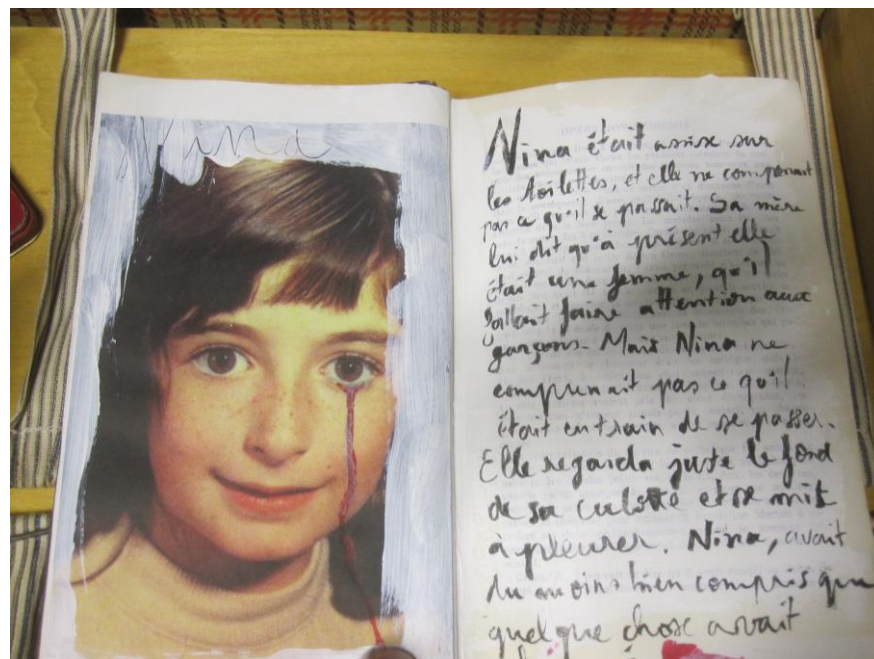 Nina
Nina était assise sur
les toilettes, et elle ne comprenait
pas ce qu'il se passait. Sa mère
lui dit qu'à présent elle
était une femme, qu'il
fallait faire attention aux
garçons. Mais Nina ne
comprenait pas ce qu'il
était en train de se passer.
Elle regarda juste le fond
de sa culotte et se mit
à pleurer. Nina, avait
du moins bien compris que
quelque chose avait